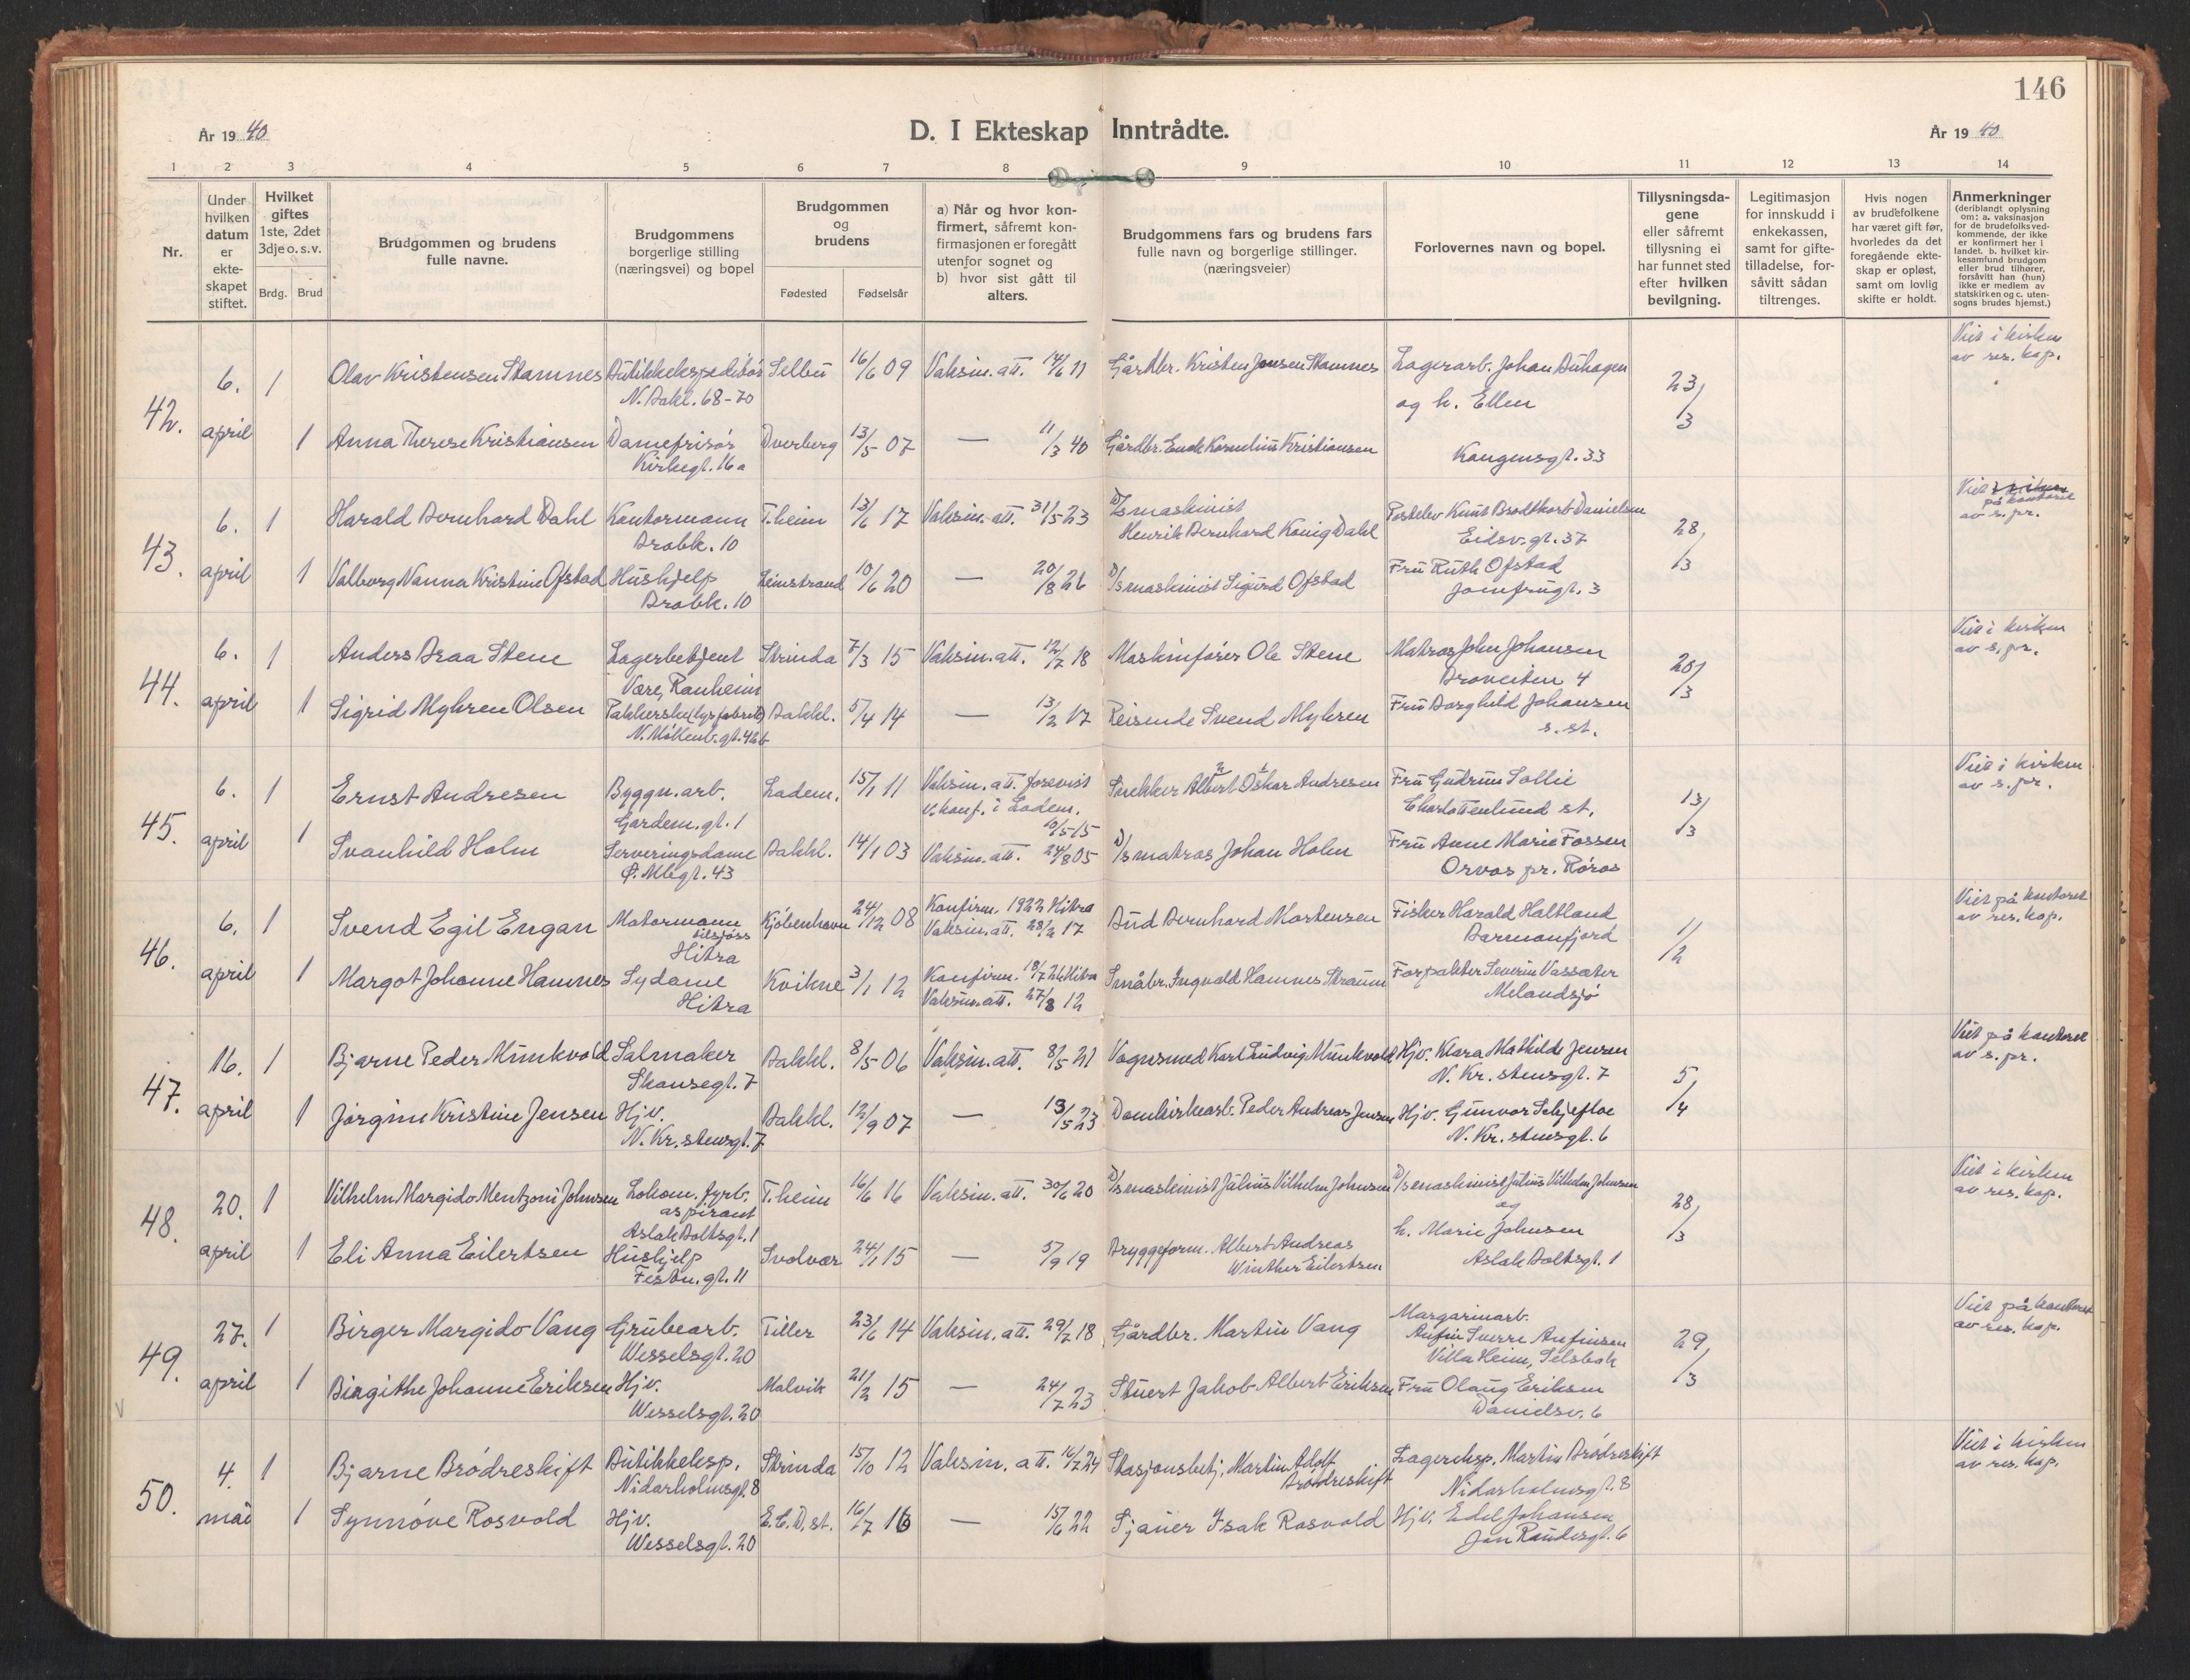 146
År 1940
D. I Ekteskap Inntrådte.
År 1940
1 2 3 4 5 6 7 8 9 10 11 12 13 14
Nr.
Under hvilken datum er ekte-skapet stiftet.
Hvilket giftes 1ste, 2det 3dje o. s. v.
Brdg. Brud
Brudgommen og brudens fulle navne.
Brudgommens borgerlige stilling (næringsvei) og bopel
Brudgommen og brudens
Fødested Fødselsår
a) Når og hvor kon-firmert, såfremt kon-firmasjonen er foregått utenfor sognet og b) hvor sist gått til alters.
Brudgommens fars og brudens fars fulle navn og borgerlige stillinger. (næringsveier)
Forlovernes navn og bopel.
Tillysningsda-gene eller såfremt tillysning ei har funnet sted efter hvilken bevilgning.
Legitimasjon for innskudd i enkekassen, samt for gifte-tilladelse, for-såvitt sådan tiltrenges.
Hvis nogen av brudefolkene har været gift før, hvorledes da det foregående ekte-skap er opløst, samt om lovlig skifte er holdt.
Anmerkninger (deriblandt oplysning om: a. vaksinasjon for de brudefolksved-kommende, der ikke er konfirmert her i landet. b. hvilket kir-kesamfund brudgom eller brud tilhører, forsåvitt han (hun) ikke er medlem av statskirken og c. uten-sogns brudes hjemst.)
42. 6. april 1 Olav Kristensen Stamnes Butikkekspeditør Selbu 16/6 09 Vaksin. att. 14/6 11 Gårdbr. Kristen Jonsen Stamnes Lagerarb. Johan Buhagen 23/3 Viet i kirken
N. Bakl. 68-70 og h. Ellen av res. kap.
1 Anna Therese Kristiansen Damefrisør Dverberg 13/5 07 — 11/3 40 Gårdbr. Enok Kornelius Kristiansen
Kirkegt. 16a Kongensgt. 33
43. 6. april 1 Harald Bernhard Dahl Kontormann T.heim 13/6 17 Vaksin. att. 31/5 23 D/s maskinist Postelev Knut Brodtkorb Danielsen 28/3 Viet på kontoret
Brobk. 10 Henrik Bernhard König Dahl Eidsv. gt. 37 av s. pr.
1 Valborg Nanna Kristine Ofstad Hushjelp Leinstrand 10/6 20 — 20/8 26 D/s maskinist Sigurd Ofstad Fru Ruth Ofstad
Brobk. 10 Jomfrugt. 3
44. 6. april 1 Anders Braa Stene Lagerbetjent Strinda 7/3 15 Vaksin. att. 12/7 18 Maskinfører Ole Stene Matros John Johansen 20/3 Viet i kirken
Være, Ranheim Broveiten 4 av s. pr.
1 Sigrid Myhren Olsen Pakkerske (lysfabrik) Bakkl. 5/4 14 — 13/2 17 Reisende Svend Myhren Fru Borghild Johansen
N. Möllenb. gt. 42b s. st.
45. 6. april 1 Ernst Andresen Byggn. arb. Ladem. 15/1 11 Vaksin. att. forevist Snekker Albert Oskar Andresen Fru Gudrun Sollie 13/3 Viet i kirken
Gardem. gt. 1 v. konf. i Ladem. Charlottenlund st. av s. pr.
10/5 15
1 Svanhild Holm Serveringsdame Bakkl. 14/1 03 Vaksin. att. 24/8 05 D/s matros Johan Holm Fru Anne Marie Fossen
Ø. Mllegt. 43 Orvos pr. Røros
46. 6. april 1 Svend Egil Engan Motormann Kjöbenhavn 24/12 08 Konfirm. 1922 Hitra Bud Bernhard Mortensen Fisker Harald Haltland 1/2 Viet på kontoret
tilsjøss Vaksin. att. 28/2 17 Barmanfjord av res. kap.
Hitra
1 Margot Johanne Hamnes Sydame Kvikne 3/1 12 Konfirm. 18/7 26 Hitra Småbr. Ingvald Hamnes Straum Forpakter Severin Vassæter
Hitra Vaksin. att. 27/8 12 Melandsjö
47. 16. april 1 Bjarne Peder Munkvold Salmaker Bakkl. 8/5 06 Vaksin. att. 8/5 21 Vognsmed Karl Ludvig Munkvold Hjv. Klara Mathilde Jensen 5/4 Viet på kontoret
Skansegt. 7 N. Kr. stensgt. 7 av s. pr.
1 Jørgine Kristine Jensen Hjv. Bakkl. 12/9 07 — 13/5 23 Domkirkearb. Peder Andreas Jensen Hjv. Gunvor Schjefloe
N. Kr. stensgt. 7 N. Kr. stensgt. 6
48. 20. april 1 Vilhelm Margido Mentzoni Johnsen Lokom. fyrb. T.heim 16/6 16 Vaksin. att. 30/6 20 D/s maskinist Julius Vilhelm Johnsen D/s maskinist Julius Vilhelm Johnsen 28/3 Viet i kirken
aspirant og av res. kap.
Aslak Boltsgt. 1 h. Marie Johnsen
1 Eli Anna Eilertsen Hushjelp Svolvær 24/1 15 — 5/9 19 Bryggeform. Albert Andreas
Festn. gt. 11 Winther Eilertsen Aslak Boltsgt. 1
49. 27. april 1 Birger Margido Vang Grubearb. Tiller 23/6 14 Vaksin. att. 29/7 18 Gårdbr. Martin Vang Margarinarb. 29/3 Viet på kontoret
Wesselsgt. 20 Anfin Sverre Anfinsen av res. kap.
Villa Heim, Selsbak
1 Birgithe Johanne Eriksen Hjv. Malvik 21/2 15 — 24/7 23 Stuert Jakob Albert Eriksen Fru Olaug Eriksen
Wesselsgt. 20 Danielsv. 6
50. 4. mai 1 Bjarne Brödreskift Butikkeksp. Strinda 15/10 12 Vaksin. att. 16/7 24 Stasjonsbetj. Martin Adolf Lagereksp. Martin Brödreskift Viet i kirken
Nidarholmsgt. 8 Brödreskift Nidarholmsgt. 8 av res. kap.
1 Synnöve Rosvold Hjv. E. C. D. st. 16/7 16 — 15/6 22 Sjauer Isak Rosvold Hjv. Edel Johansen
Wesselsgt. 20 Jon Raudesgt. 6